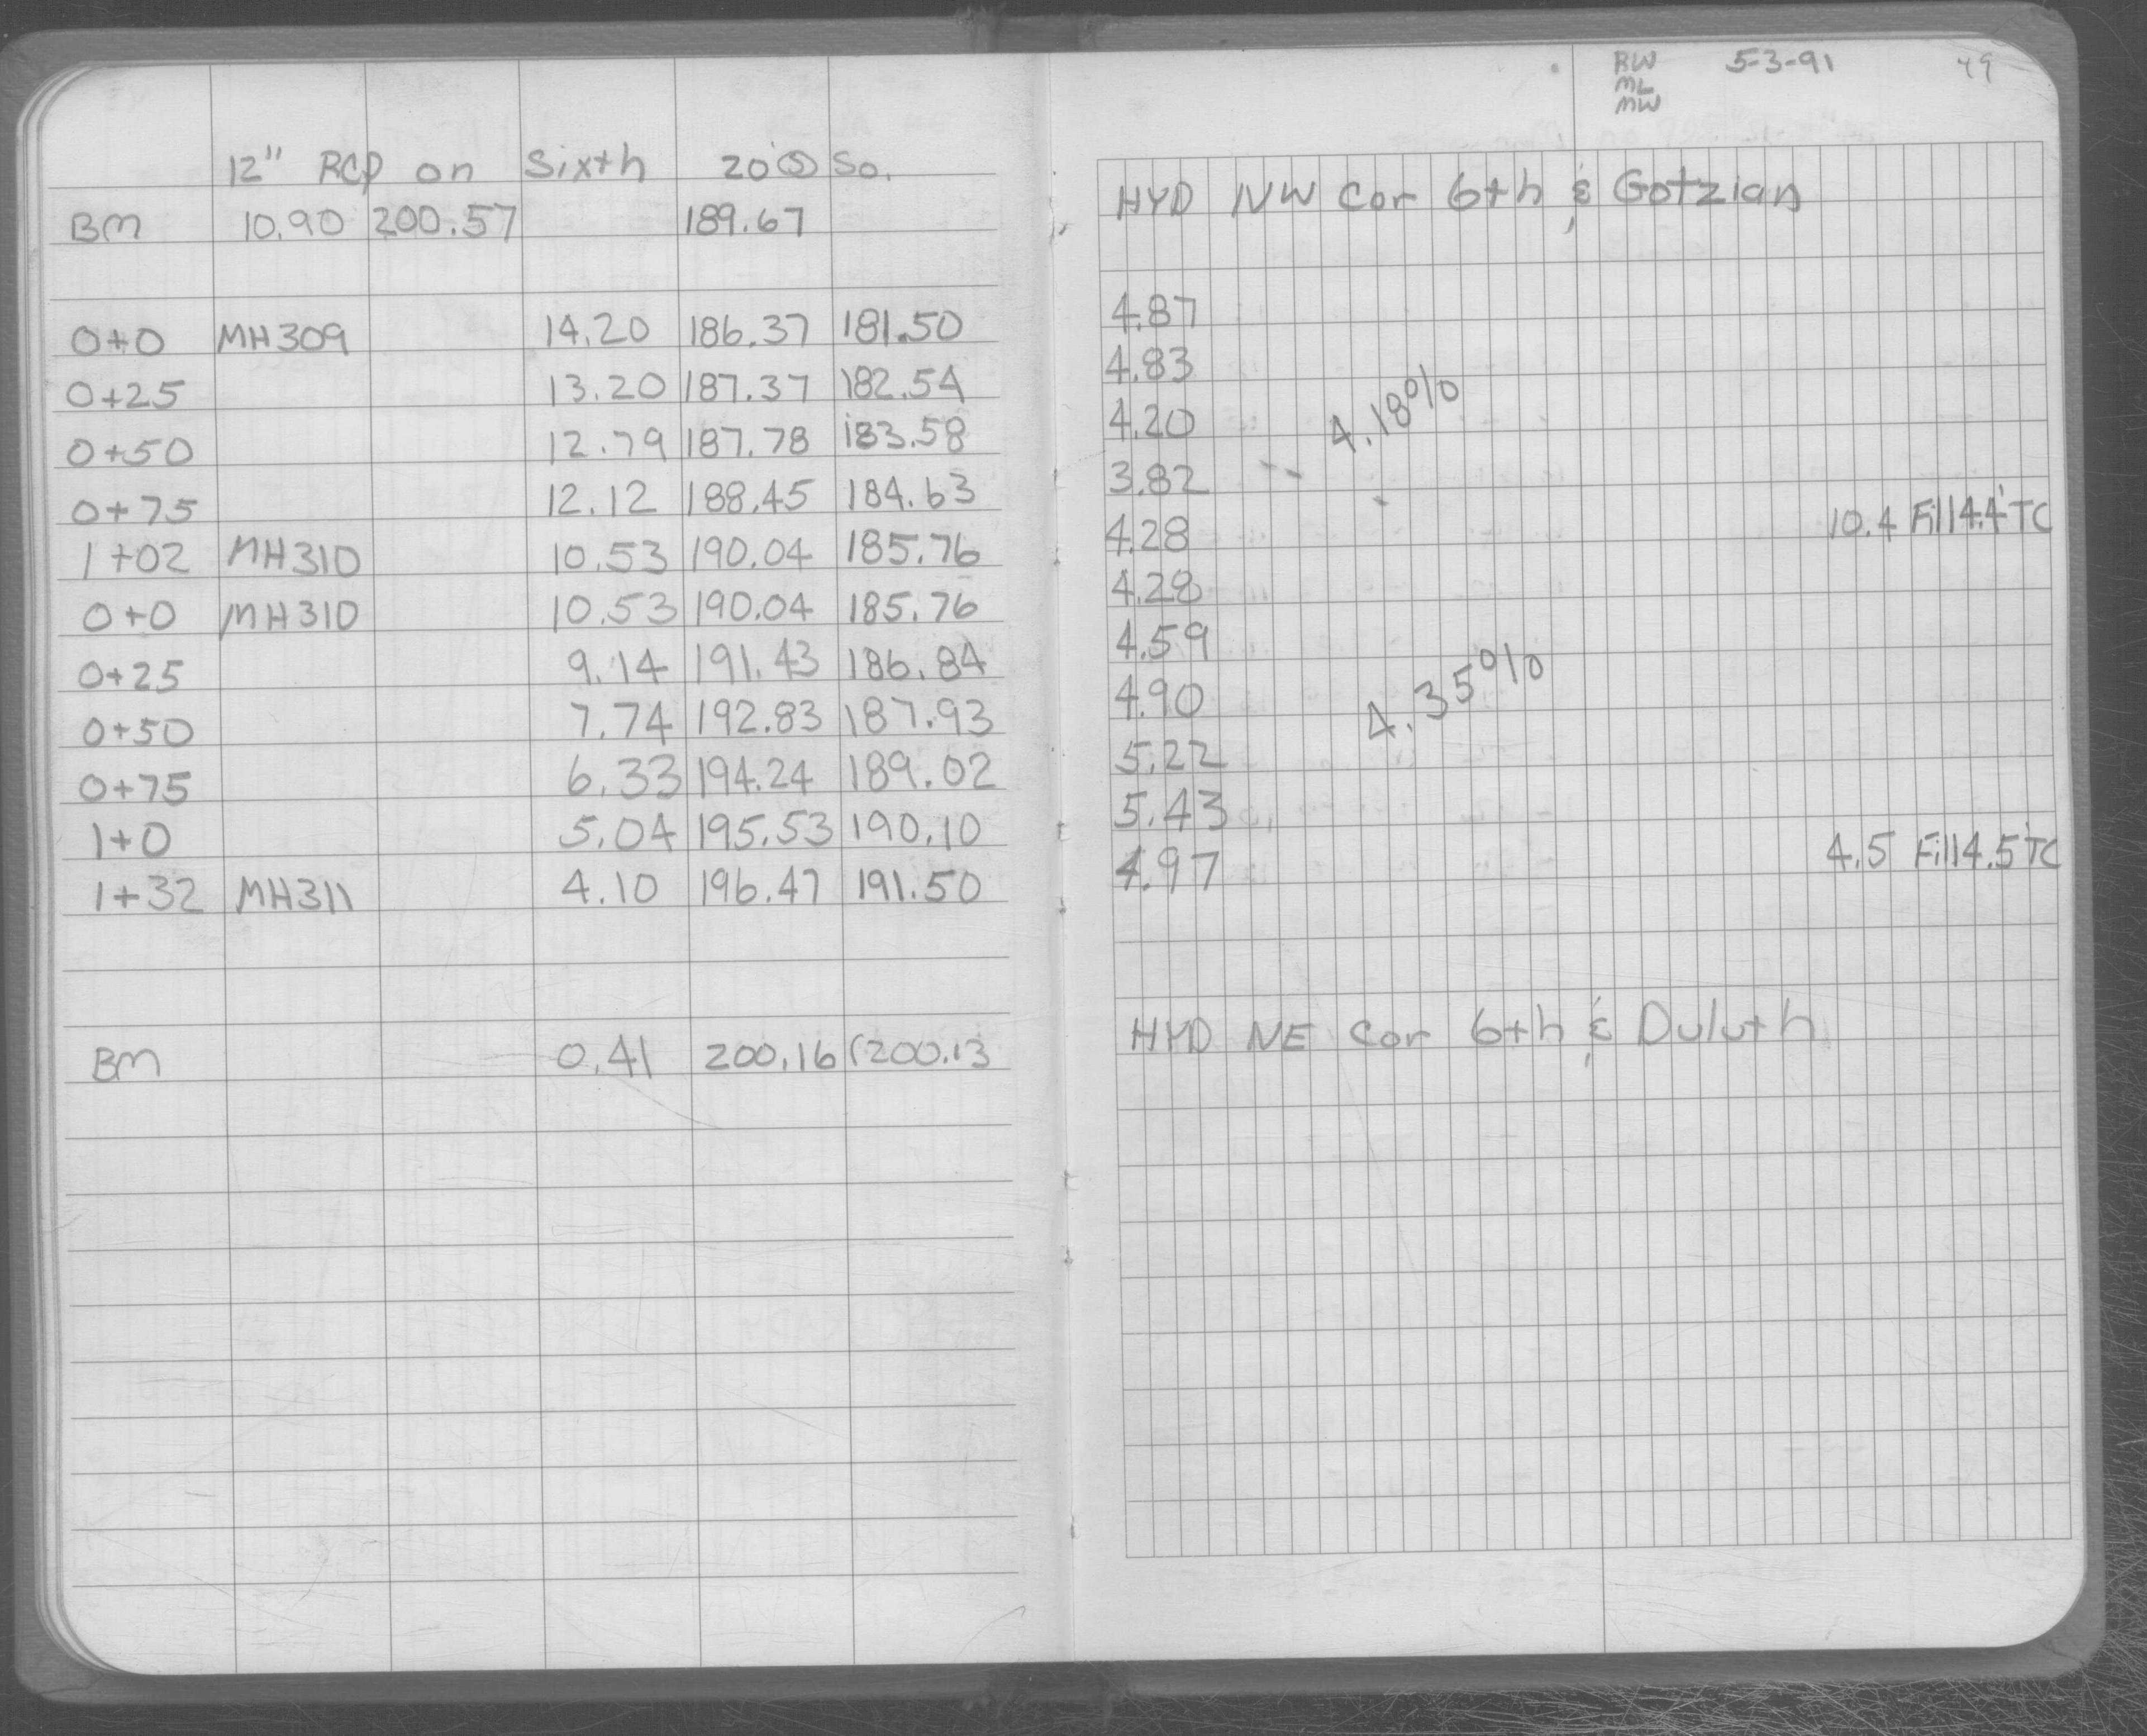 12" RCP on Sixth 20' Ⓢ So.
BM 10.90 200.57 189.67
0+0 MH309 14.20 186.37 181.50
0+25 13.20 187.37 182.54
0+50 12.79 187.78 183.58
0+75 12.12 188.45 184.63
1+02 MH310 10.53 190.04 185.76
0+0 MH310 10.53 190.04 185.76
0+25 9.14 191.43 186.84
0+50 7.74 192.83 187.93
0+75 6.33 194.24 189.02
1+0 5.04 195.53 190.10
1+32 MH311 4.10 196.47 191.50
BM 0.41 200.16 (200.13
RW 5-3-91 49
ML
MW
HYD NW Cor 6th & Gotzian
4.87
4.83
4.20 4.18%
3.82
4.28 10.4 Fill 4.4' TC
4.28
4.59
4.90 4.35%
5.22
5.43
4.97 4.5 Fill 4.5' TC
HYD NE Cor 6th & Duluth